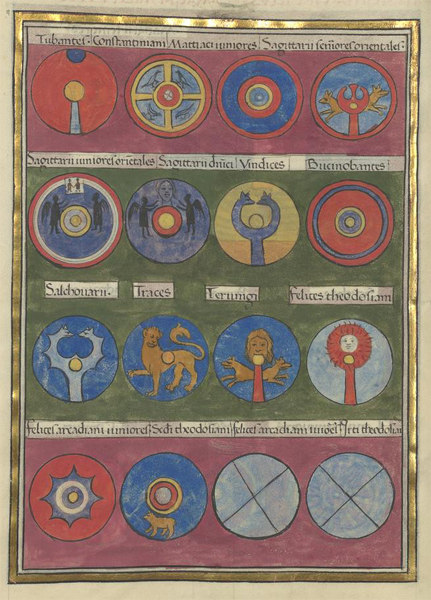 Tubantes. Constantiniani Mattiaci iuniores Sagittarii seniores orientales.
Sagittarii iuniores orientales Sagittarii dn̄ici Vindices Bucinobantes
Salchouarii. Traces Teruingi felices theodosiani
felices arcadiani iuniores Scdi theodosiani felices arcadiani iunio&s Trti theodosiani